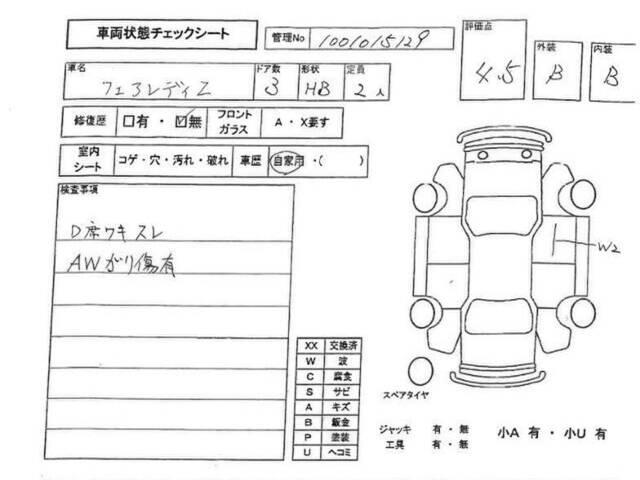 車両状態チェックシート 管理No 1001015129
評価点 4.5 外装 B 内装 B
車名 フェアレディZ ドア数 3 形状 HB 定員 2人
修復歴 □有・☑無 フロントガラス A・X要す
室内シート コゲ・穴・汚れ・破れ 車歴 自家用・( )
検査事項
D席ワキスレ
AWがり傷有
W2
XX 交換済
W 波
C 腐食
S サビ
A キズ
B 鈑金
P 塗装
U ヘコミ
スペアタイヤ
ジャッキ 有・無
工具 有・無
小A 有・小U 有